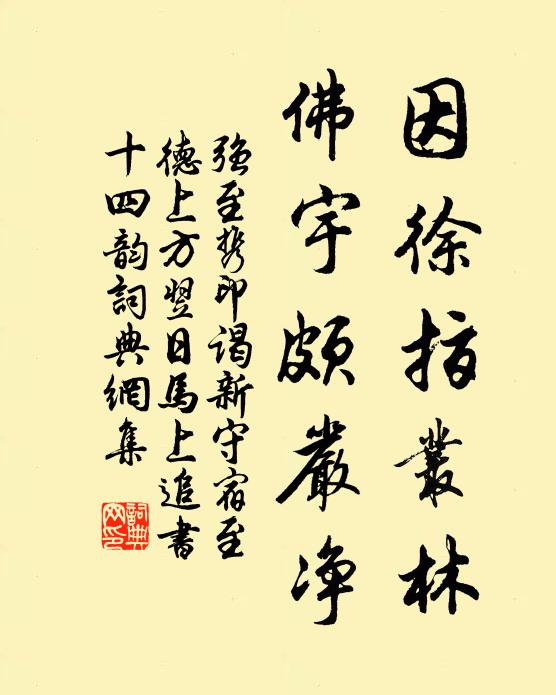 因徐指叢林
佛宇頗嚴净
强至携印谒新守宿至
德上方翌日馬上追書
十四韵詞典網集
詞典网印